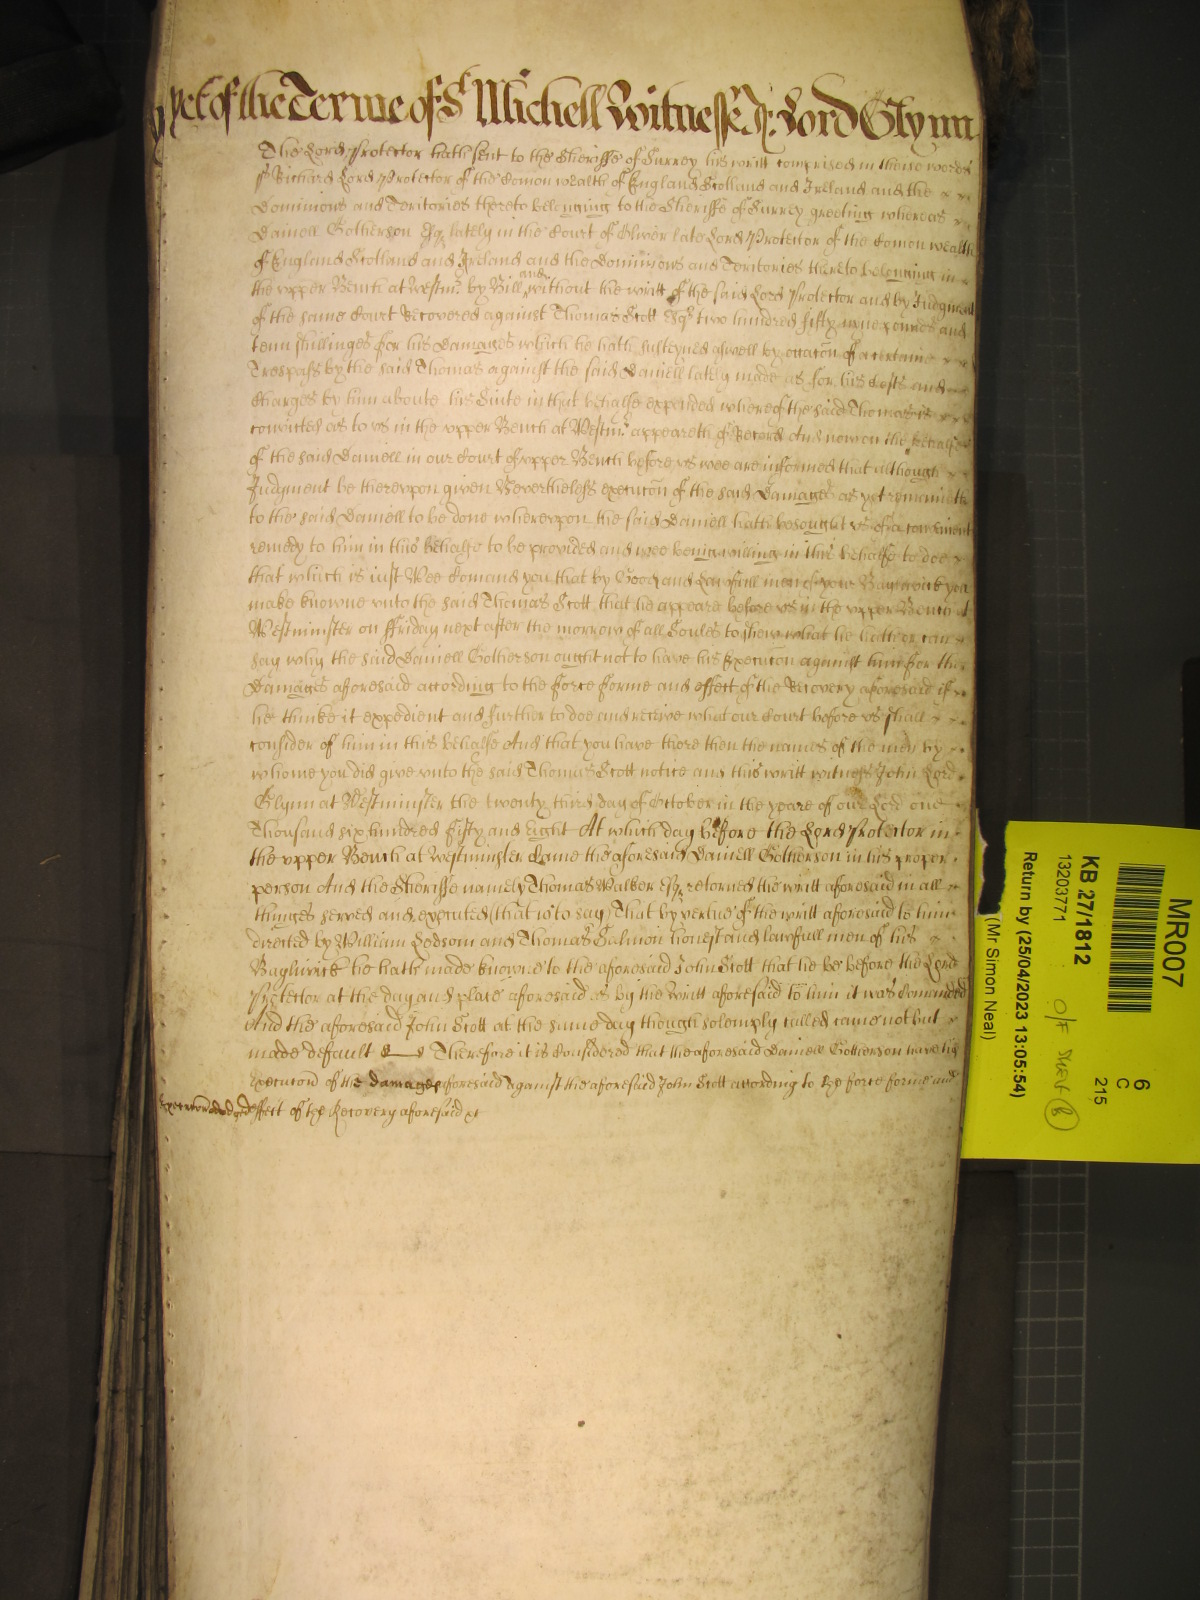 yet of the Terme of St Michell Witnesse Jo: Lord Glynn
The Lord Protector hath sent to the Sheriffe of Surrey his writt comprised in theise words
Richard Lord Protector of the Comon wealth of England Scotland and Ireland and the
Dominions and Territories thereto belonging to the Sheriffe of Surrey greeting whereas
Daniell Gotherson Esqr lately in the Court of Oliver late Lord Protector of the Comon wealth
of England Scotland and Ireland and the Dominions and Territories thereto belonging in
the upper Bench at Westmr by Bill and without the writt of the said Lord Protector and by Judgment
of the same Court Recovered against Thomas Scott Esqr two hundred fifty nyne pounds and
tenn shillinges for his damages which he hath susteyned aswell by occacon of a certaine
Trespass by the said Thomas against the said Daniell lately made as for his Costs and
Charges by him aboute his Suite in that behalfe expended whereof the said Thomas is
convicted as to us in the upper Bench at Westmr appeareth of Record And now on the behalfe
of the said Daniell in our Court of upper Bench before us wee are informed that although
Judgment be thereupon given Nevertheless execucon of the said Damages as yet remaineth
to the said Daniell to be done whereupon the said Daniell hath besought us of a convenient
remedy to him in this behalfe to be provided and wee being willing in this behalfe to doe
that which is iust Wee Comand you that by Good and Lawfull men of your Baylywick you
make knowne unto the said Thomas Scott that he appeare before us in the upper Bench at
Westminster on ffriday next after the morrow of all Soules to shew what he hath or can
say why the said Daniell Gotherson ought not to have his Execucon against him for the
Damages aforesaid according to the force forme and effect of the Recovery aforesaid if
he thinke it expedient and further to doe and receive what our Court before us shall
consider of him in this behalfe And that you have there then the names of the men by
whome you did give unto the said Thomas Scott notice and this writt witness John Lord
Glynn at Westminster the twenty third day of October in the yeare of our Lord one
Thousand six hundred fifty and eight At which day before the Lord Protector in
the upper Bench at Westminster Came the aforesaid Daniell Gotherson in his proper
person And the Sheriffe namely Thomas Walker Esqr retorned the writt aforesaid in all
thinges served and executed (that is to say) That by vertue of the writt aforesaid to him
directed by William Dodson and Thomas Salmon honest and lawfull men of his
Bayliwick he hath made knowne to the aforesaid John Scott that he be before the Lord
Protector at the day and place aforesaid as by the Writt aforesaid to him it was Comanded
And the aforesaid John Scott at the same day though solemply called came not but
made default Therefore it is Considered that the aforesaid Daniell Gotherson have his
Execucon of the damages aforesaid against the aforesaid John Scott according to the force forme and
effect of the Recovery aforesaid &c
MR007
6
C
215
KB 27/1812
13203771
Return by (25/04/2023 13:05:54)
(Mr Simon Neal)